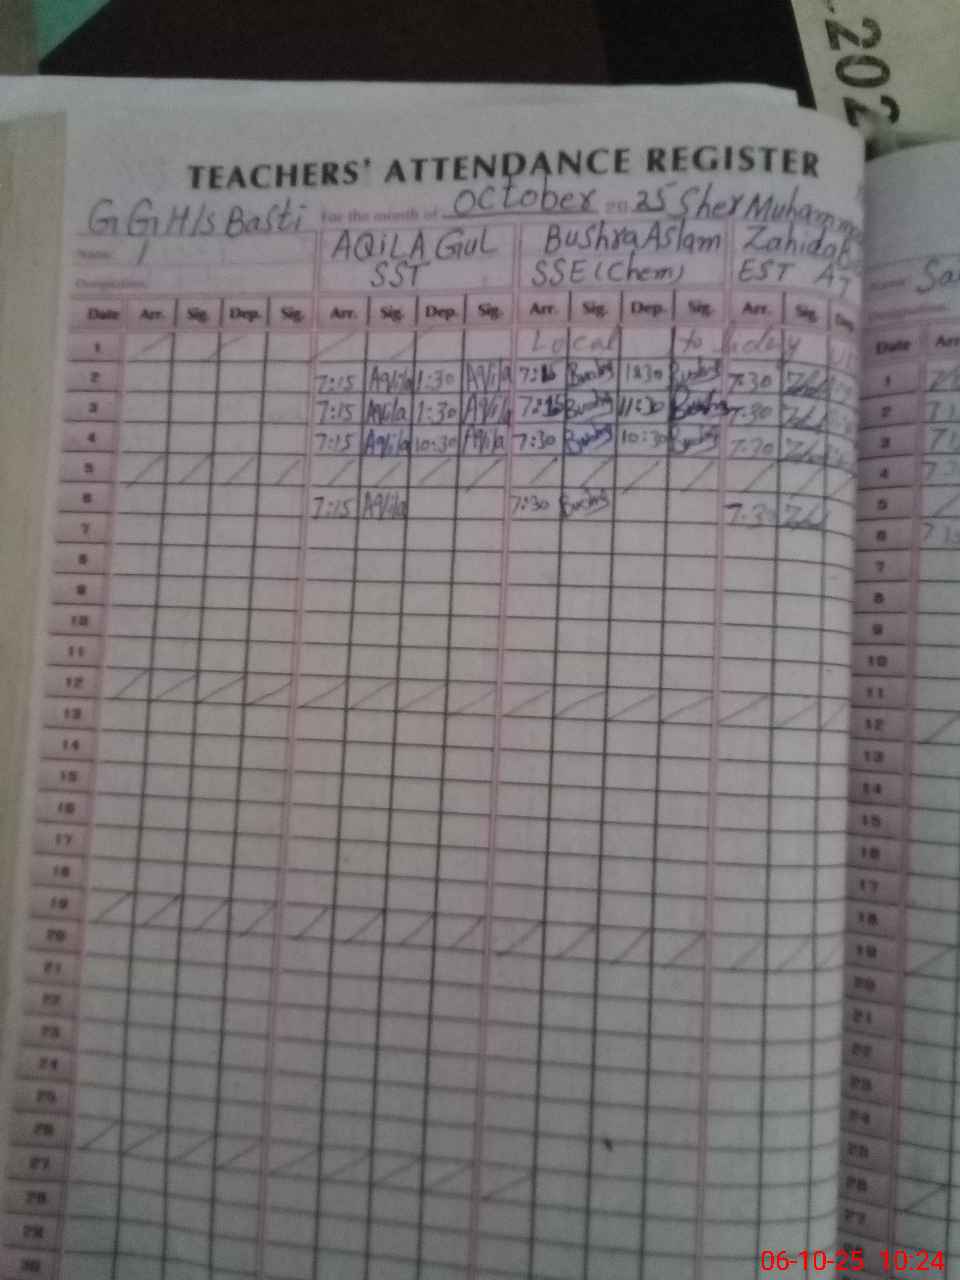 202
TEACHERS' ATTENDANCE REGISTER
GGH/S Basti For the month of October 2025 Sher Muhamm
Name AQiLA Gul Bushra Aslam Zahida
Designation SST SSE (Chem) EST AT
Date Arr. Sig. Dep. Sig. Arr. Sig. Dep. Sig. Arr. Sig. Dep. Sig. Arr. Sig. Dep.
1 Local
2 7:15 Aqila 1:30 Aqila 7:15 Bushra 1:30 Bushra 7:30
3 7:15 Aqila 1:30 Aqila 7:15 Bushra 11:30 Bushra 7:30
4 7:15 Aqila 10:30 Aqila 7:30 Bushra 10:30 Bushra 7:30
5
6 7:15 Aqila 7:30 Bushra 7:30
7
8
9
10
11
12
13
14
15
16
17
18
19
20
21
22
23
24
25
26
27
28
29
30
Name
Date Arr
1
2
3
4
5
6
7
8
9
10
11
12
13
14
15
16
17
18
19
20
21
22
23
24
25
26
27
06-10-25 10:24